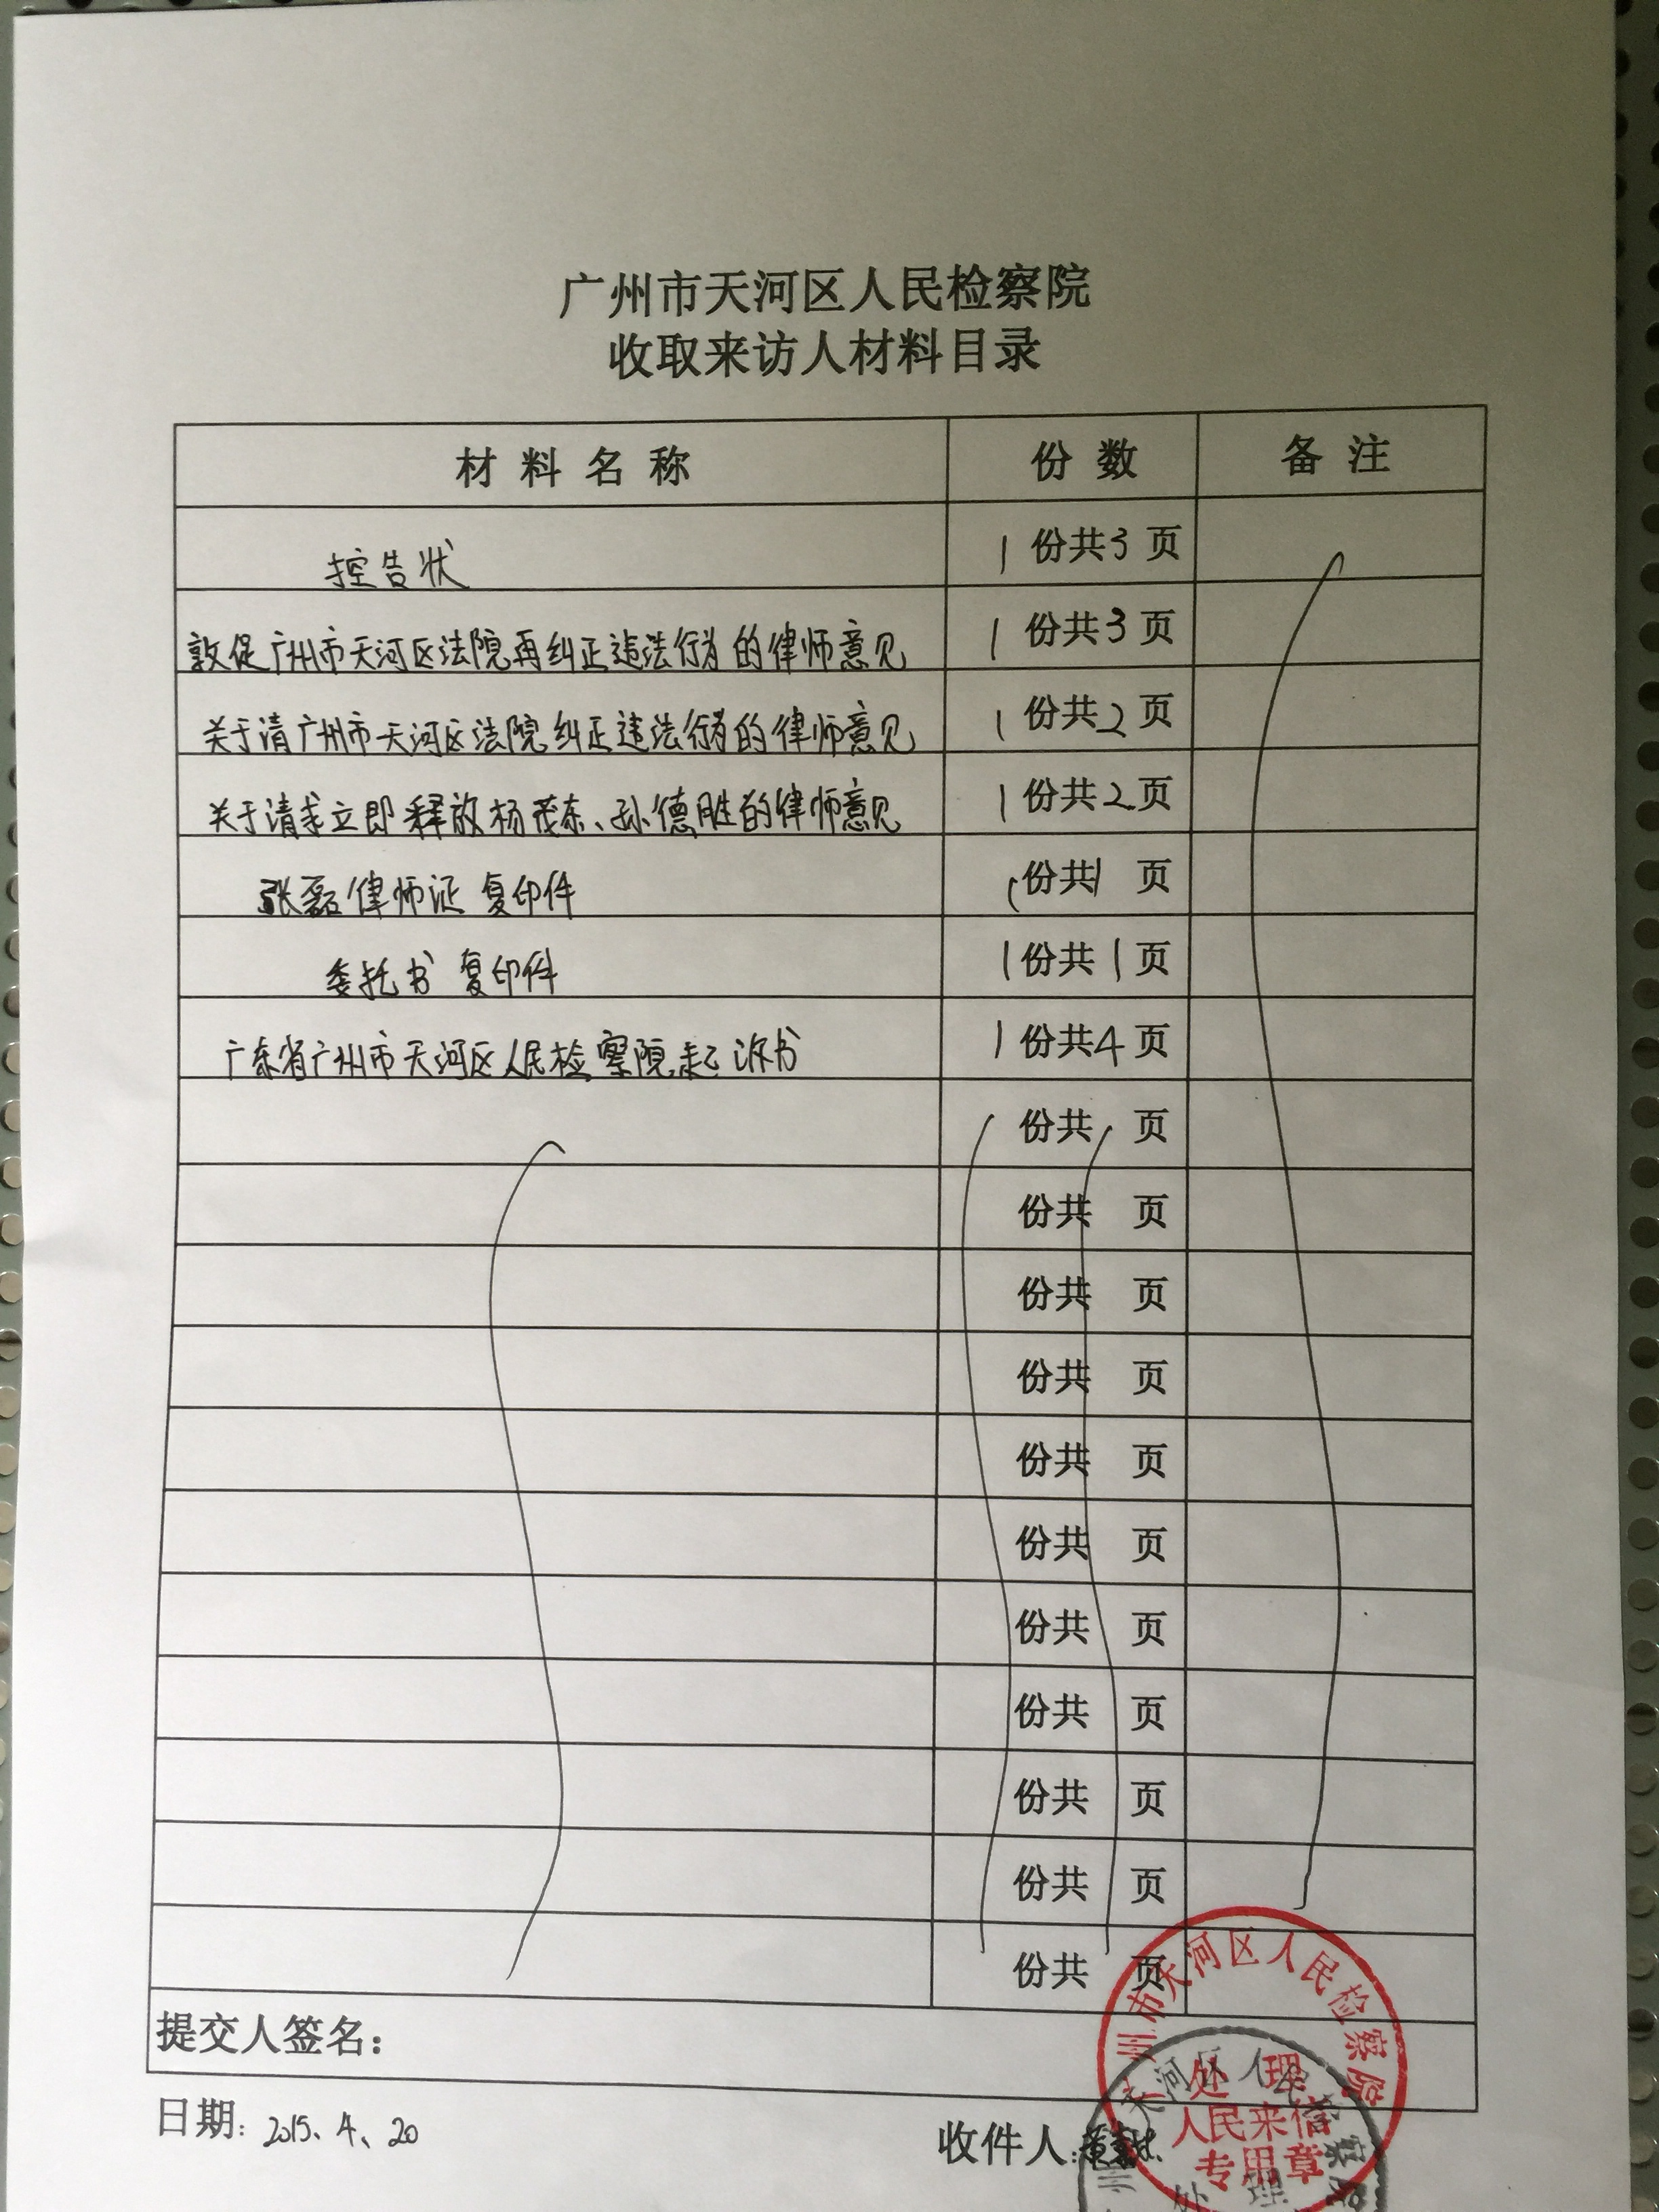 广州市天河区人民检察院
收取来访人材料目录
材料名称 份数 备注
控告状 1份共3页
敦促广州市天河区法院再纠正违法行为的律师意见 1份共3页
关于请广州市天河区法院纠正违法行为的律师意见 1份共2页
关于请求立即释放杨茂东、孙德胜的律师意见 1份共2页
张磊律师证复印件 1份共1页
委托书复印件 1份共1页
广东省广州市天河区人民检察院起诉书 1份共4页
份共 页
份共 页
份共 页
份共 页
份共 页
份共 页
份共 页
份共 页
份共 页
份共 页
份共 页
提交人签名：
日期：2015、4、20
收件人：
州市天河区人民检察院
处理
人民来信
专用章
州 天河区人民 察院
处理